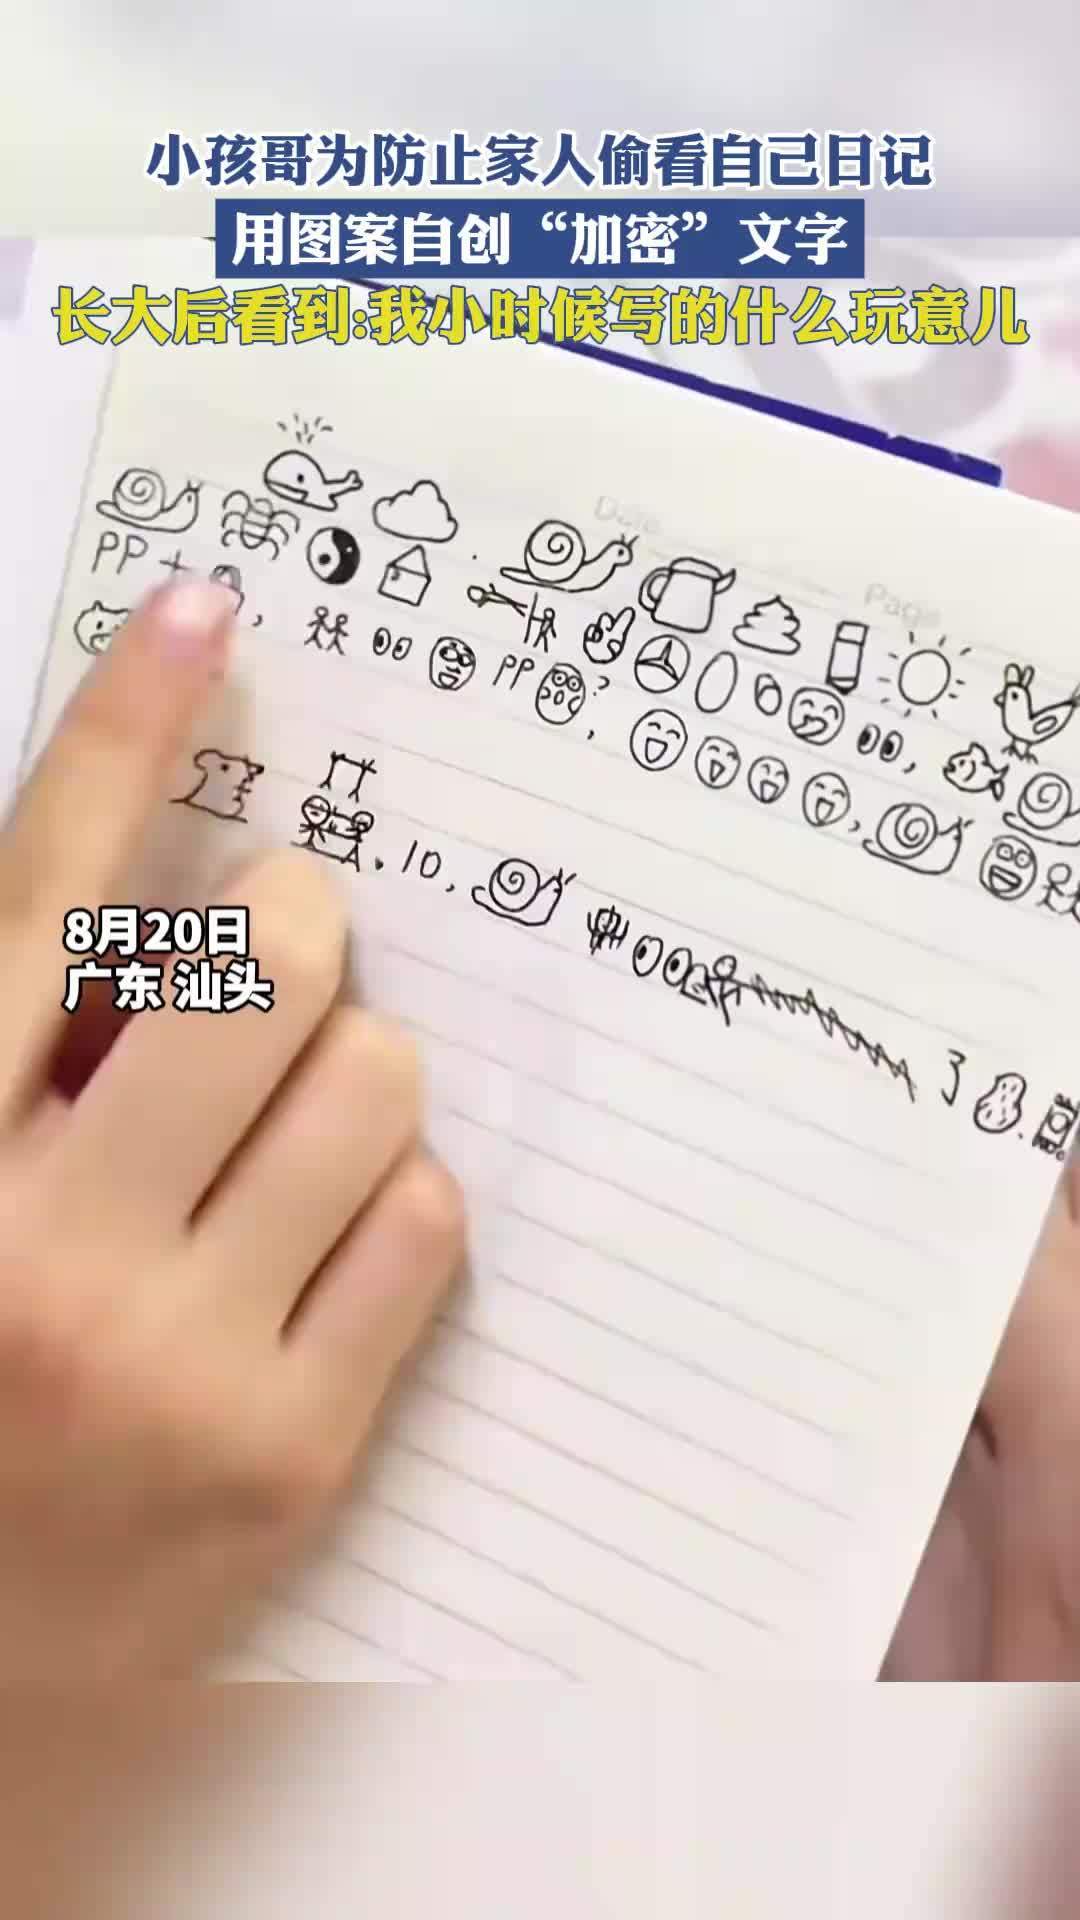 小孩哥为防止家人偷看自己日记
用图案自创“加密”文字
长大后看到:我小时候写的什么玩意儿
Date
Page
PP +
PP ?
10,
了
8月20日
广东 汕头